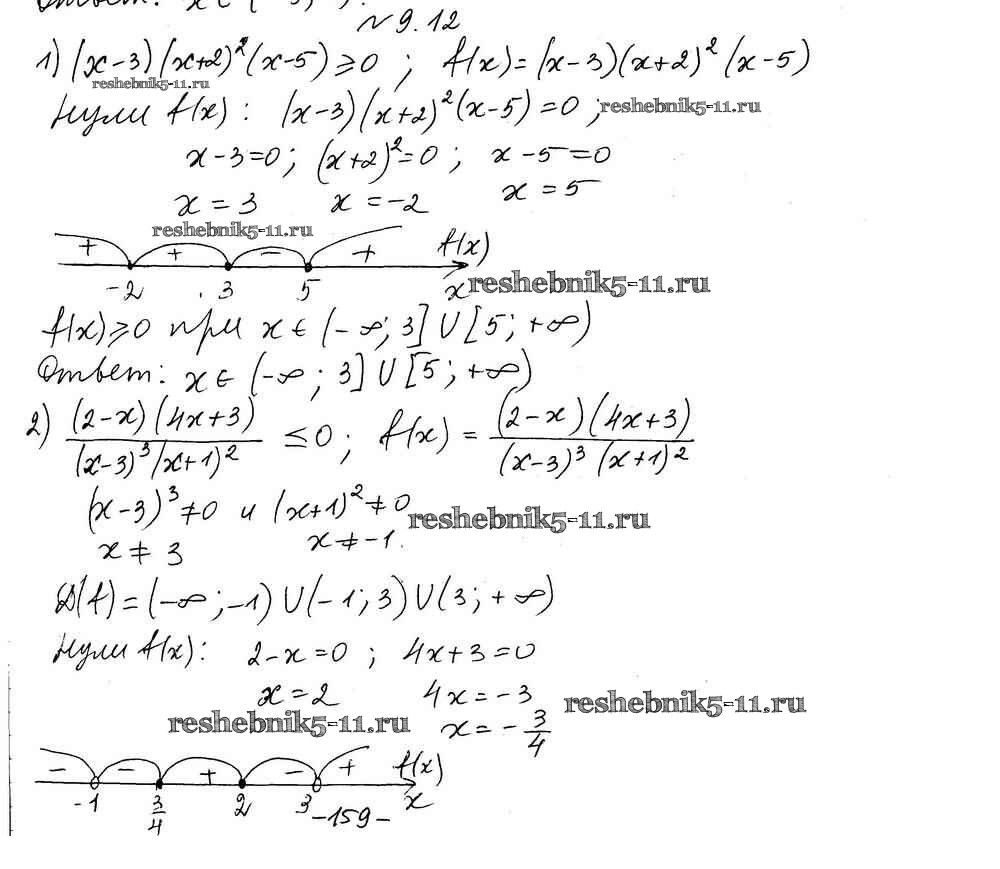 Ответ: x ∈ (
№ 9.12
1) (x-3)(x+2)²(x-5) ≥ 0 ; f(x) = (x-3)(x+2)²(x-5)
reshebnik5-11.ru
Нули f(x) : (x-3)(x+2)²(x-5) = 0 ; reshebnik5-11.ru
x-3=0 ; (x+2)²=0 ; x-5=0
x = 3 x = -2 x = 5
reshebnik5-11.ru
+ + - + f(x)
-2 3 5 x reshebnik5-11.ru
f(x) ≥ 0 при x ∈ (-∞; 3] U [5; +∞)
Ответ: x ∈ (-∞ ; 3] U [5 ; +∞)
2) (2-x)(4x+3)/(x-3)³(x+1)² ≤ 0 ; f(x) = (2-x)(4x+3)/(x-3)³(x+1)²
(x-3)³ ≠ 0 и (x+1)² ≠ 0 reshebnik5-11.ru
x ≠ 3 x ≠ -1.
D(f) = (-∞ ; -1) U (-1 ; 3) U (3 ; +∞)
Нули f(x) : 2-x=0 ; 4x+3=0
x = 2 4x = -3 reshebnik5-11.ru
reshebnik5-11.ru x = -3/4
- - + - + f(x)
-1 3/4 2 3 x
-159-